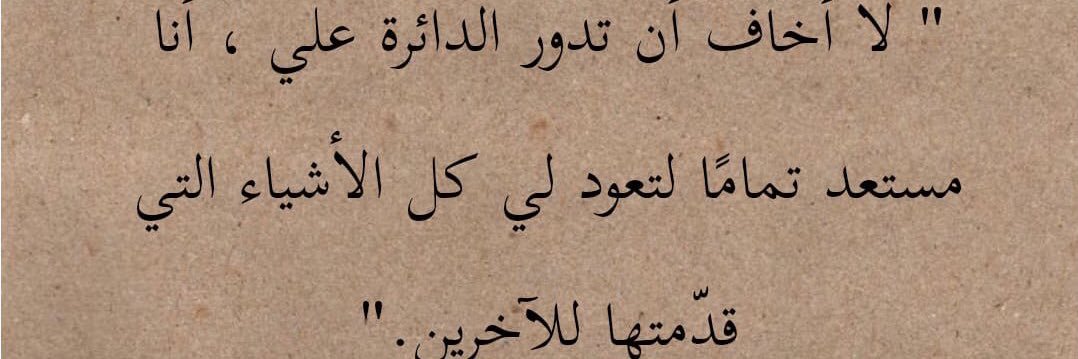 " لا أخاف أن تدور الدائرة علي ، أنا
مستعد تمامًا لتعود لي كل الأشياء التي
قدّمتها للآخرين ."